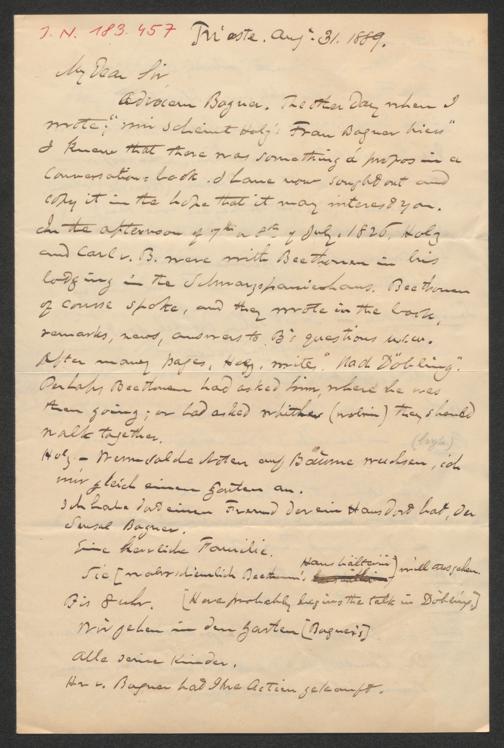 J. N. 183.457
Trieste. Aug. 31. 1889.
My Dear Sir
Advocem Bogner. The other day when I
wrote; "mir scheint Holz's Frau Bogner hiess"
I knew that there was something à propos in a
Conversations book. I have now sought out and
copy it in the hope that it may interest you.
In the afternoon of 7th or 8th of July, 1826, Holz
and Carl v. B. were with Beethoven in his
lodging in the Schwarzspanierhaus. Beethoven
of course spoke, and they wrote in the book,
remarks, news, answers to B's questions usw.
After many pages, Holz, write "Nach Döbling".
Perhaps Beethoven had asked him where he was
then going; or had asked whither (wohin) they should
walk together.
Holz — Wenn solche Noten auf Bäume wuchsen, ich
mir gleich einen Garten an.
Ich habe dort einen Freund der ein Haus dort hat, der
Sensal Bogner.
Eine herrliche Familie.
Sie [wahrscheinlich Beethoven's Haushälterin] will ausgehen.
Bis 8 uhr. [Here probably begins the talk in Döbling.]
Wir gehen in den Garten [Bogner's]
Alle seine Kinder.
Hr v. Bogner hat Ihre Actien gekauft.